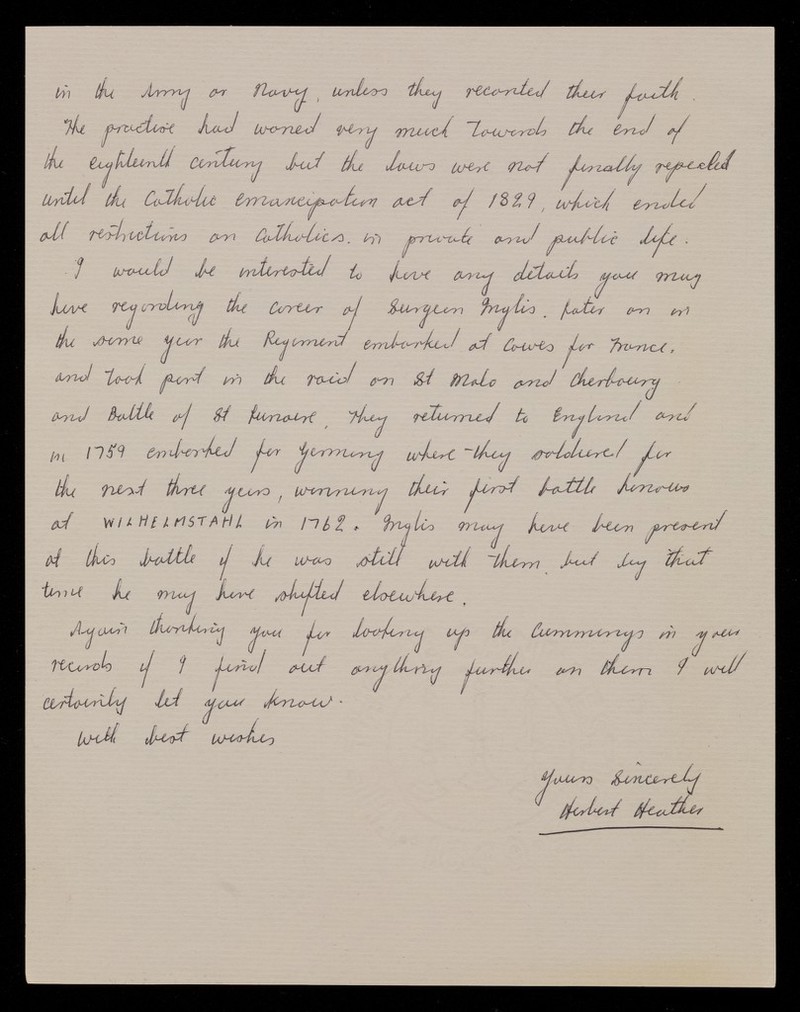 in the Army or Navy, unless they recanted their faith.
The practise had waned very much towards the end of
the eighteenth century but the laws were not finally repealed
until the Catholic emancipation act of 1829, which ended
all restrictions on Catholics. in private and public life.
I would be interested to have any details you may
have regarding the career of Surgeon Inglis. Later on in
the same year the Regiment embarked at Cowes for France,
and took part in the raid on St Malo and Cherbourg
and Battle of St Lunaire, They returned to England and
in 1759 embarked for Germany where they soldiered for
the next three years, winning their first battle honours
at WILHELMSTAHL in 1762. Inglis may have been present
at this battle if he was still with them, but by that
time he may have shifted elsewhere.
Again thanking you for looking up the Cummings in your
records if I find out anything further on them I will
certainly let you know.
With best wishes
Yours Sincerely
Herbert Heather